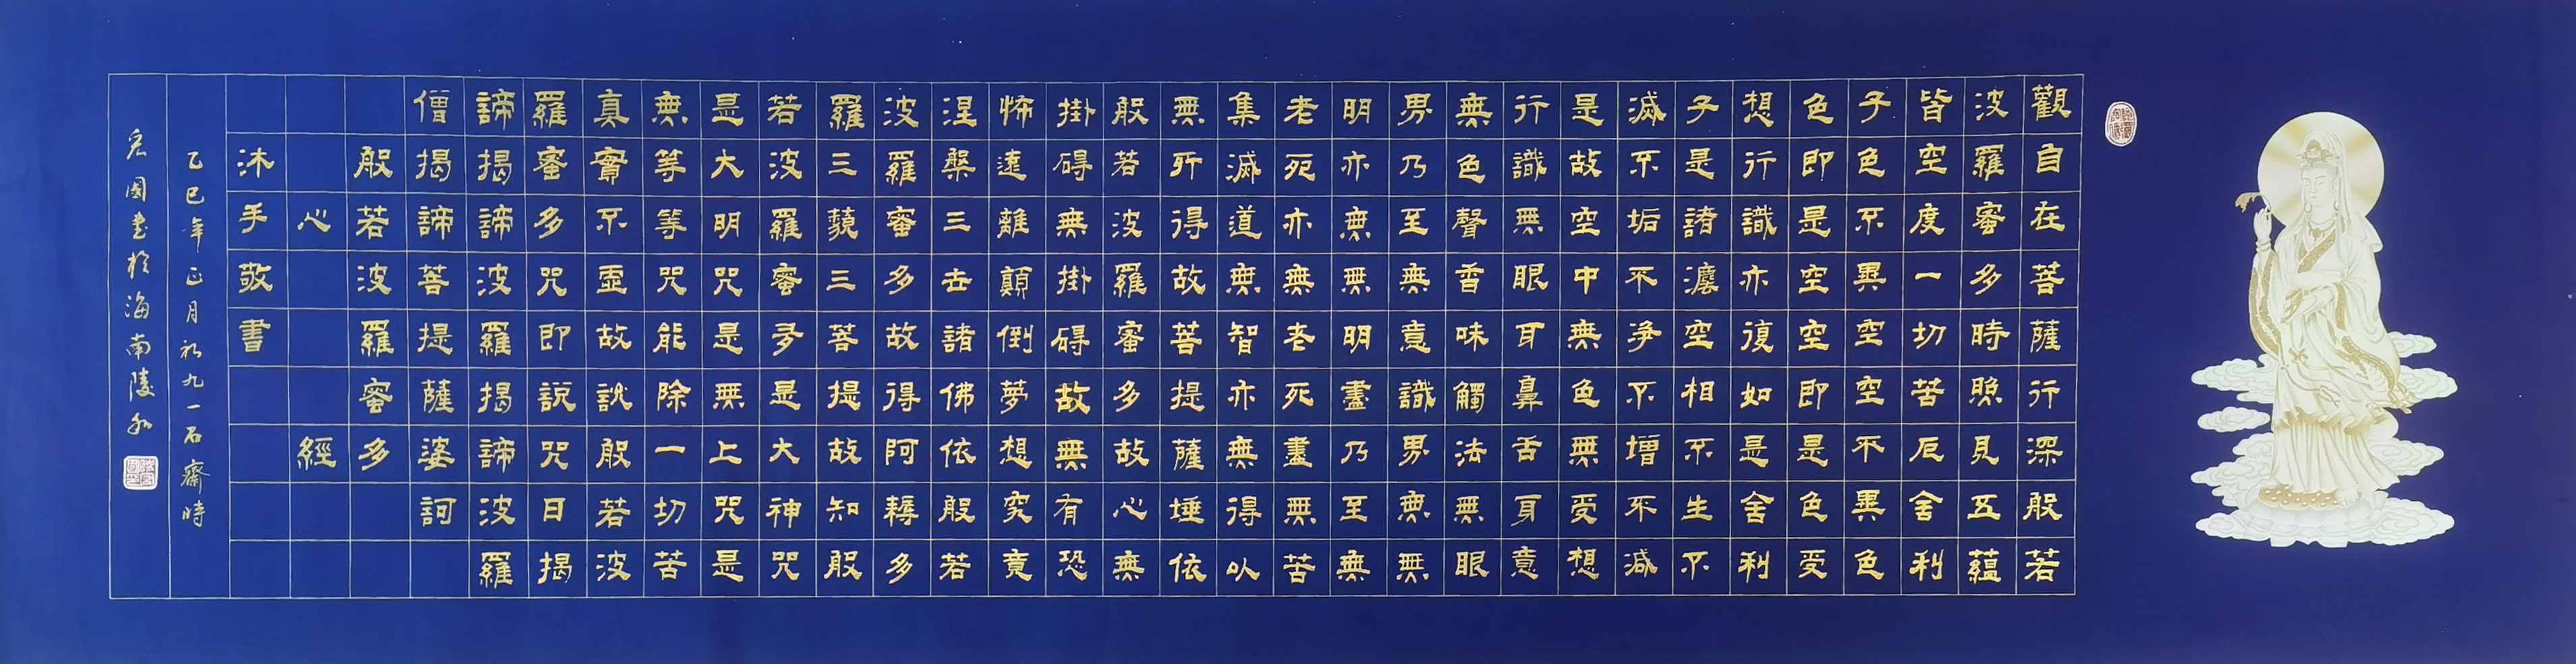 觀自在菩薩行深般若
波羅蜜多時照見五蘊
皆空度一切苦厄舍利
子色不異空空不異色
色即是空空即是色受
想行識亦復如是舍利
子是諸灋空相不生不
滅不垢不淨不增不減
是故空中無色無受想
行識無眼耳鼻舌身意
無色聲香味觸法無眼
界乃至無意識界無無
明亦無無明盡乃至無
老死亦無老死盡無苦
集滅道無智亦無得以
無所得故菩提薩埵依
般若波羅蜜多故心無
掛碍無掛碍故無有恐
怖遠離顛倒夢想究竟
涅槃三世諸佛依般若
波羅蜜多故得阿耨多
羅三藐三菩提故知般
若波羅蜜多是大神咒
是大明咒是無上咒是
無等等咒能除一切苦
真實不虛故說般若波
羅蜜多咒即說咒曰揭
諦揭諦波羅揭諦波羅
僧揭諦菩提薩婆訶
般若波羅蜜多
心經
沐手敬書
乙巳年正月初九一石齋時
宏國書於海南陵水